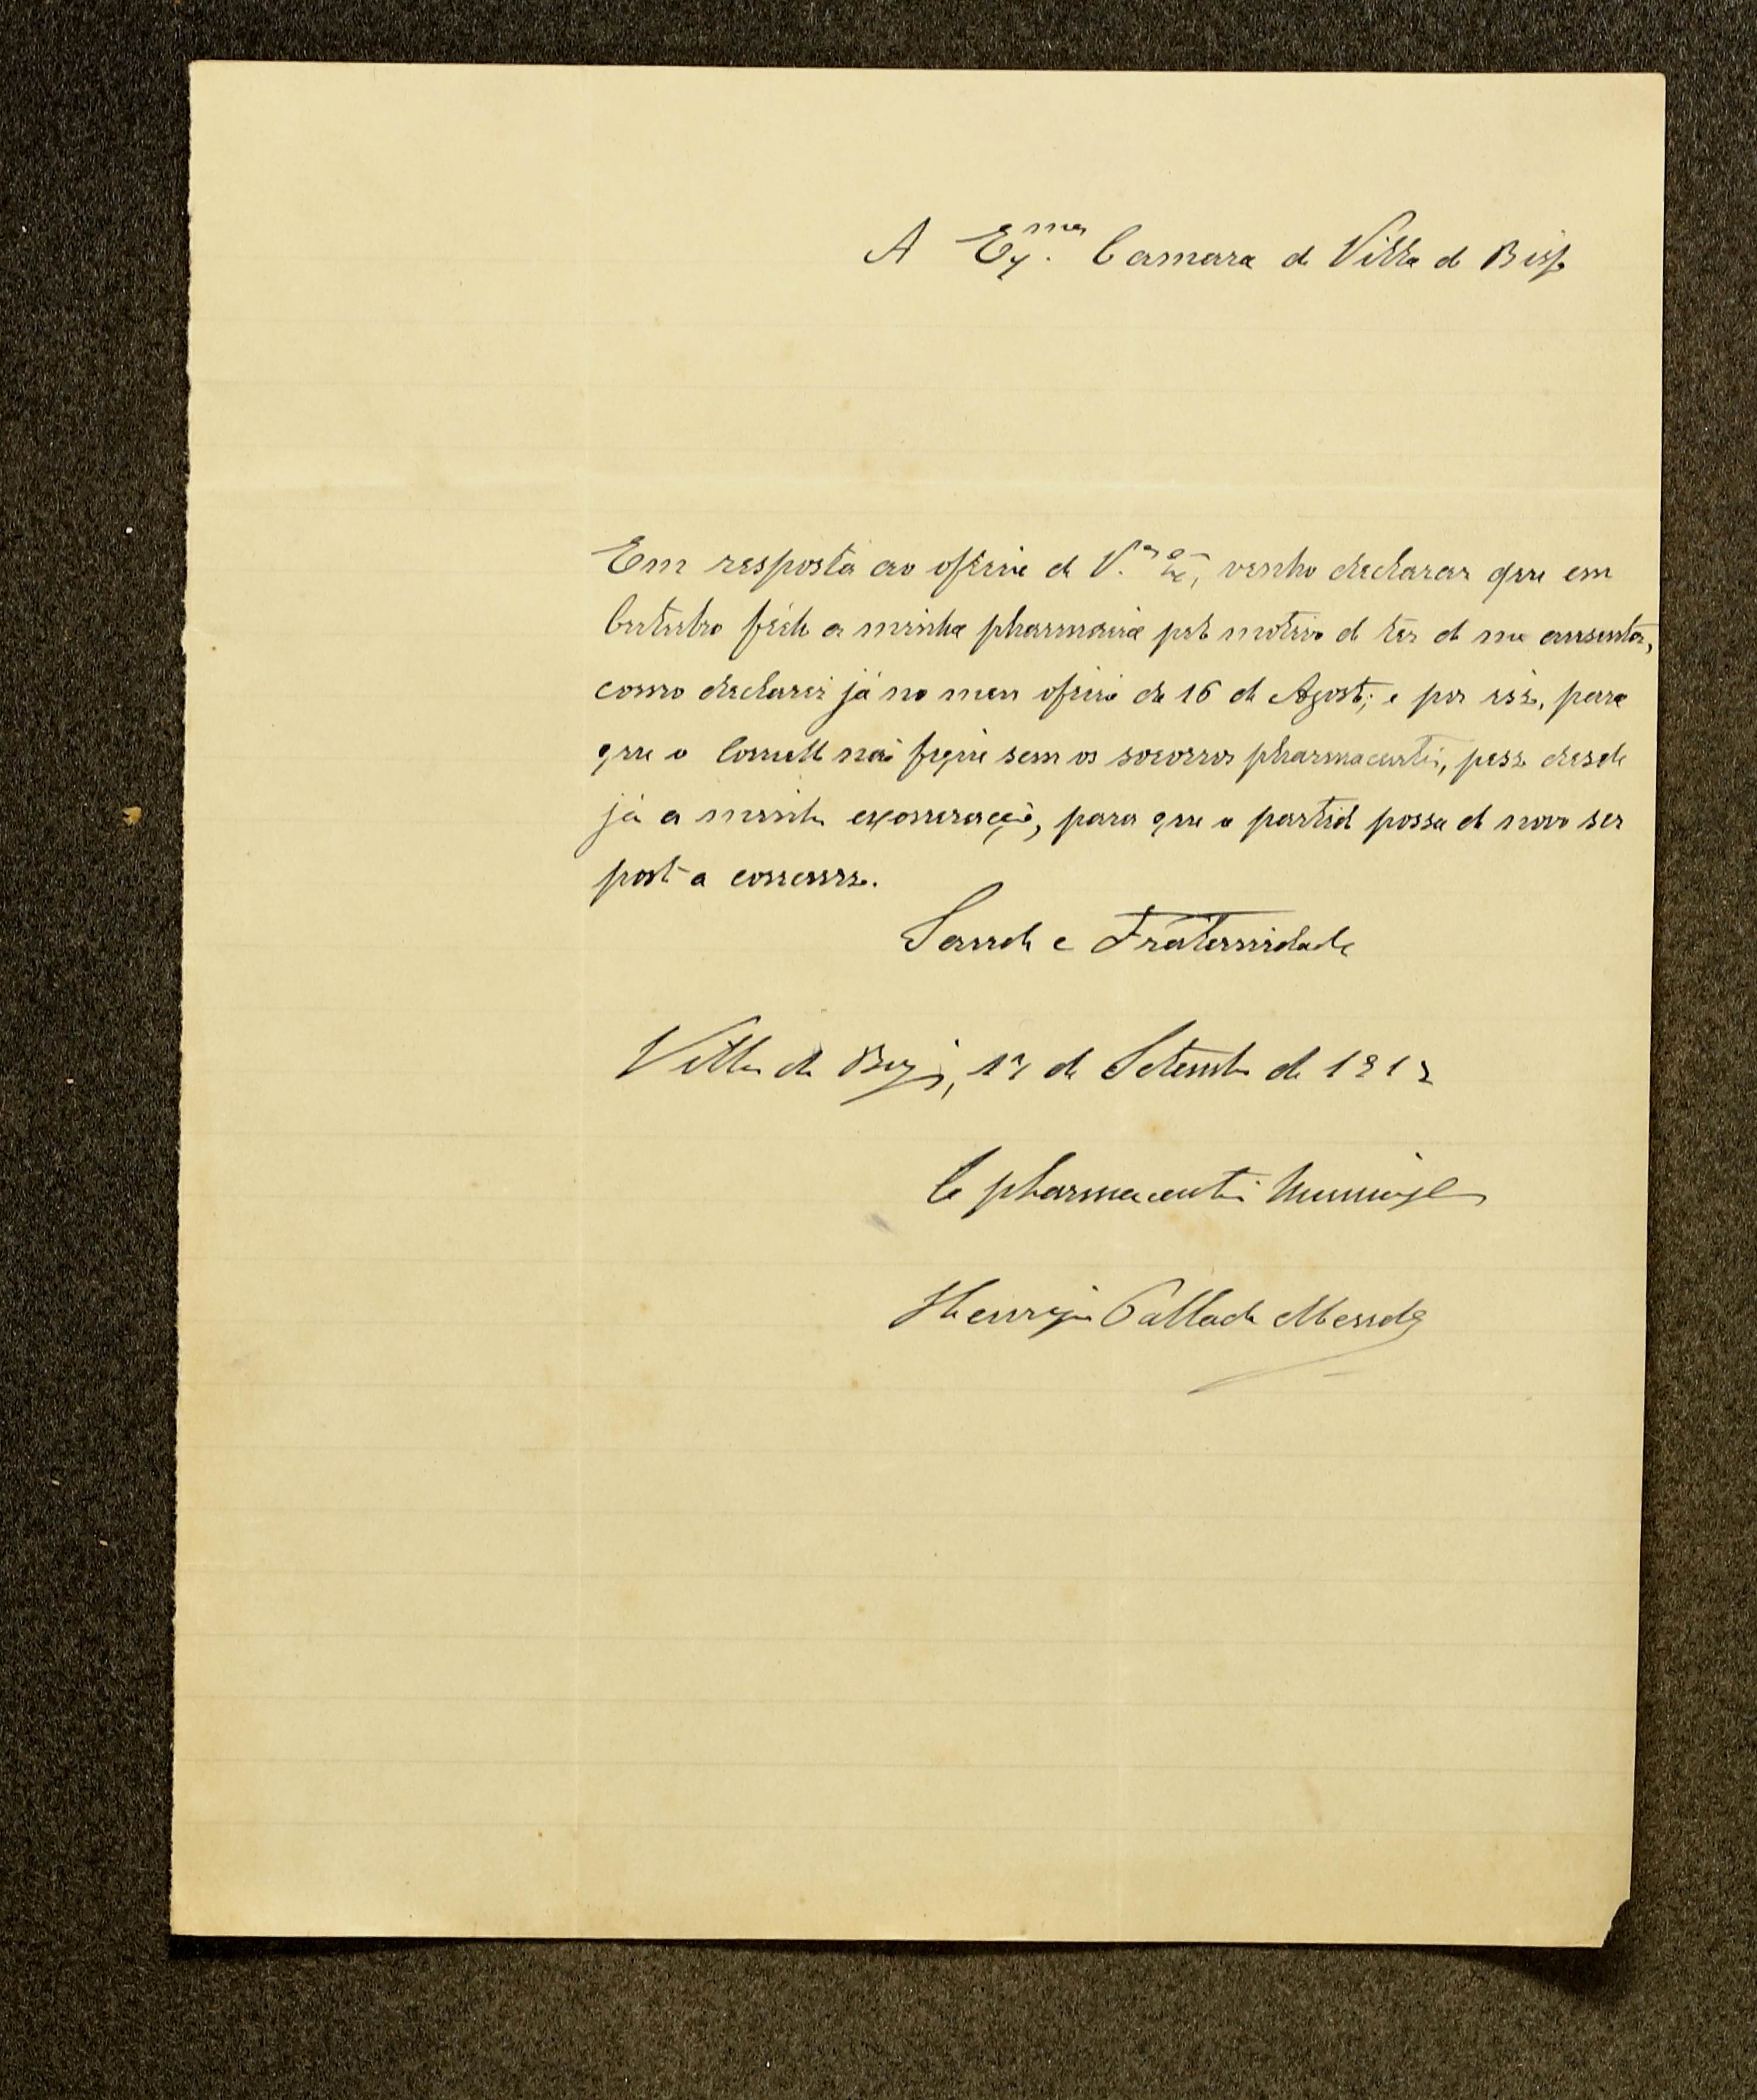 A Exma. Camara de Villa do Bispo
Em resposta ao oficio de V.as Ex.as, venho declarar que em
Outubro fécho a minha pharmacia pelo motivo de ter de me ausentar,
como declarei já no meu oficio de 16 de Agosto; e por isso, para
que o Concelho não fique sem os socorros pharmaceuticos, peço desde
já a minha exoneração, para que o partido possa de novo ser
posto a concurso.
Saude e Fraternidade
Villa do Bispo, 17 de Setembro de 1912
O pharmaceutico Municipal
Henrique Callado Mendes